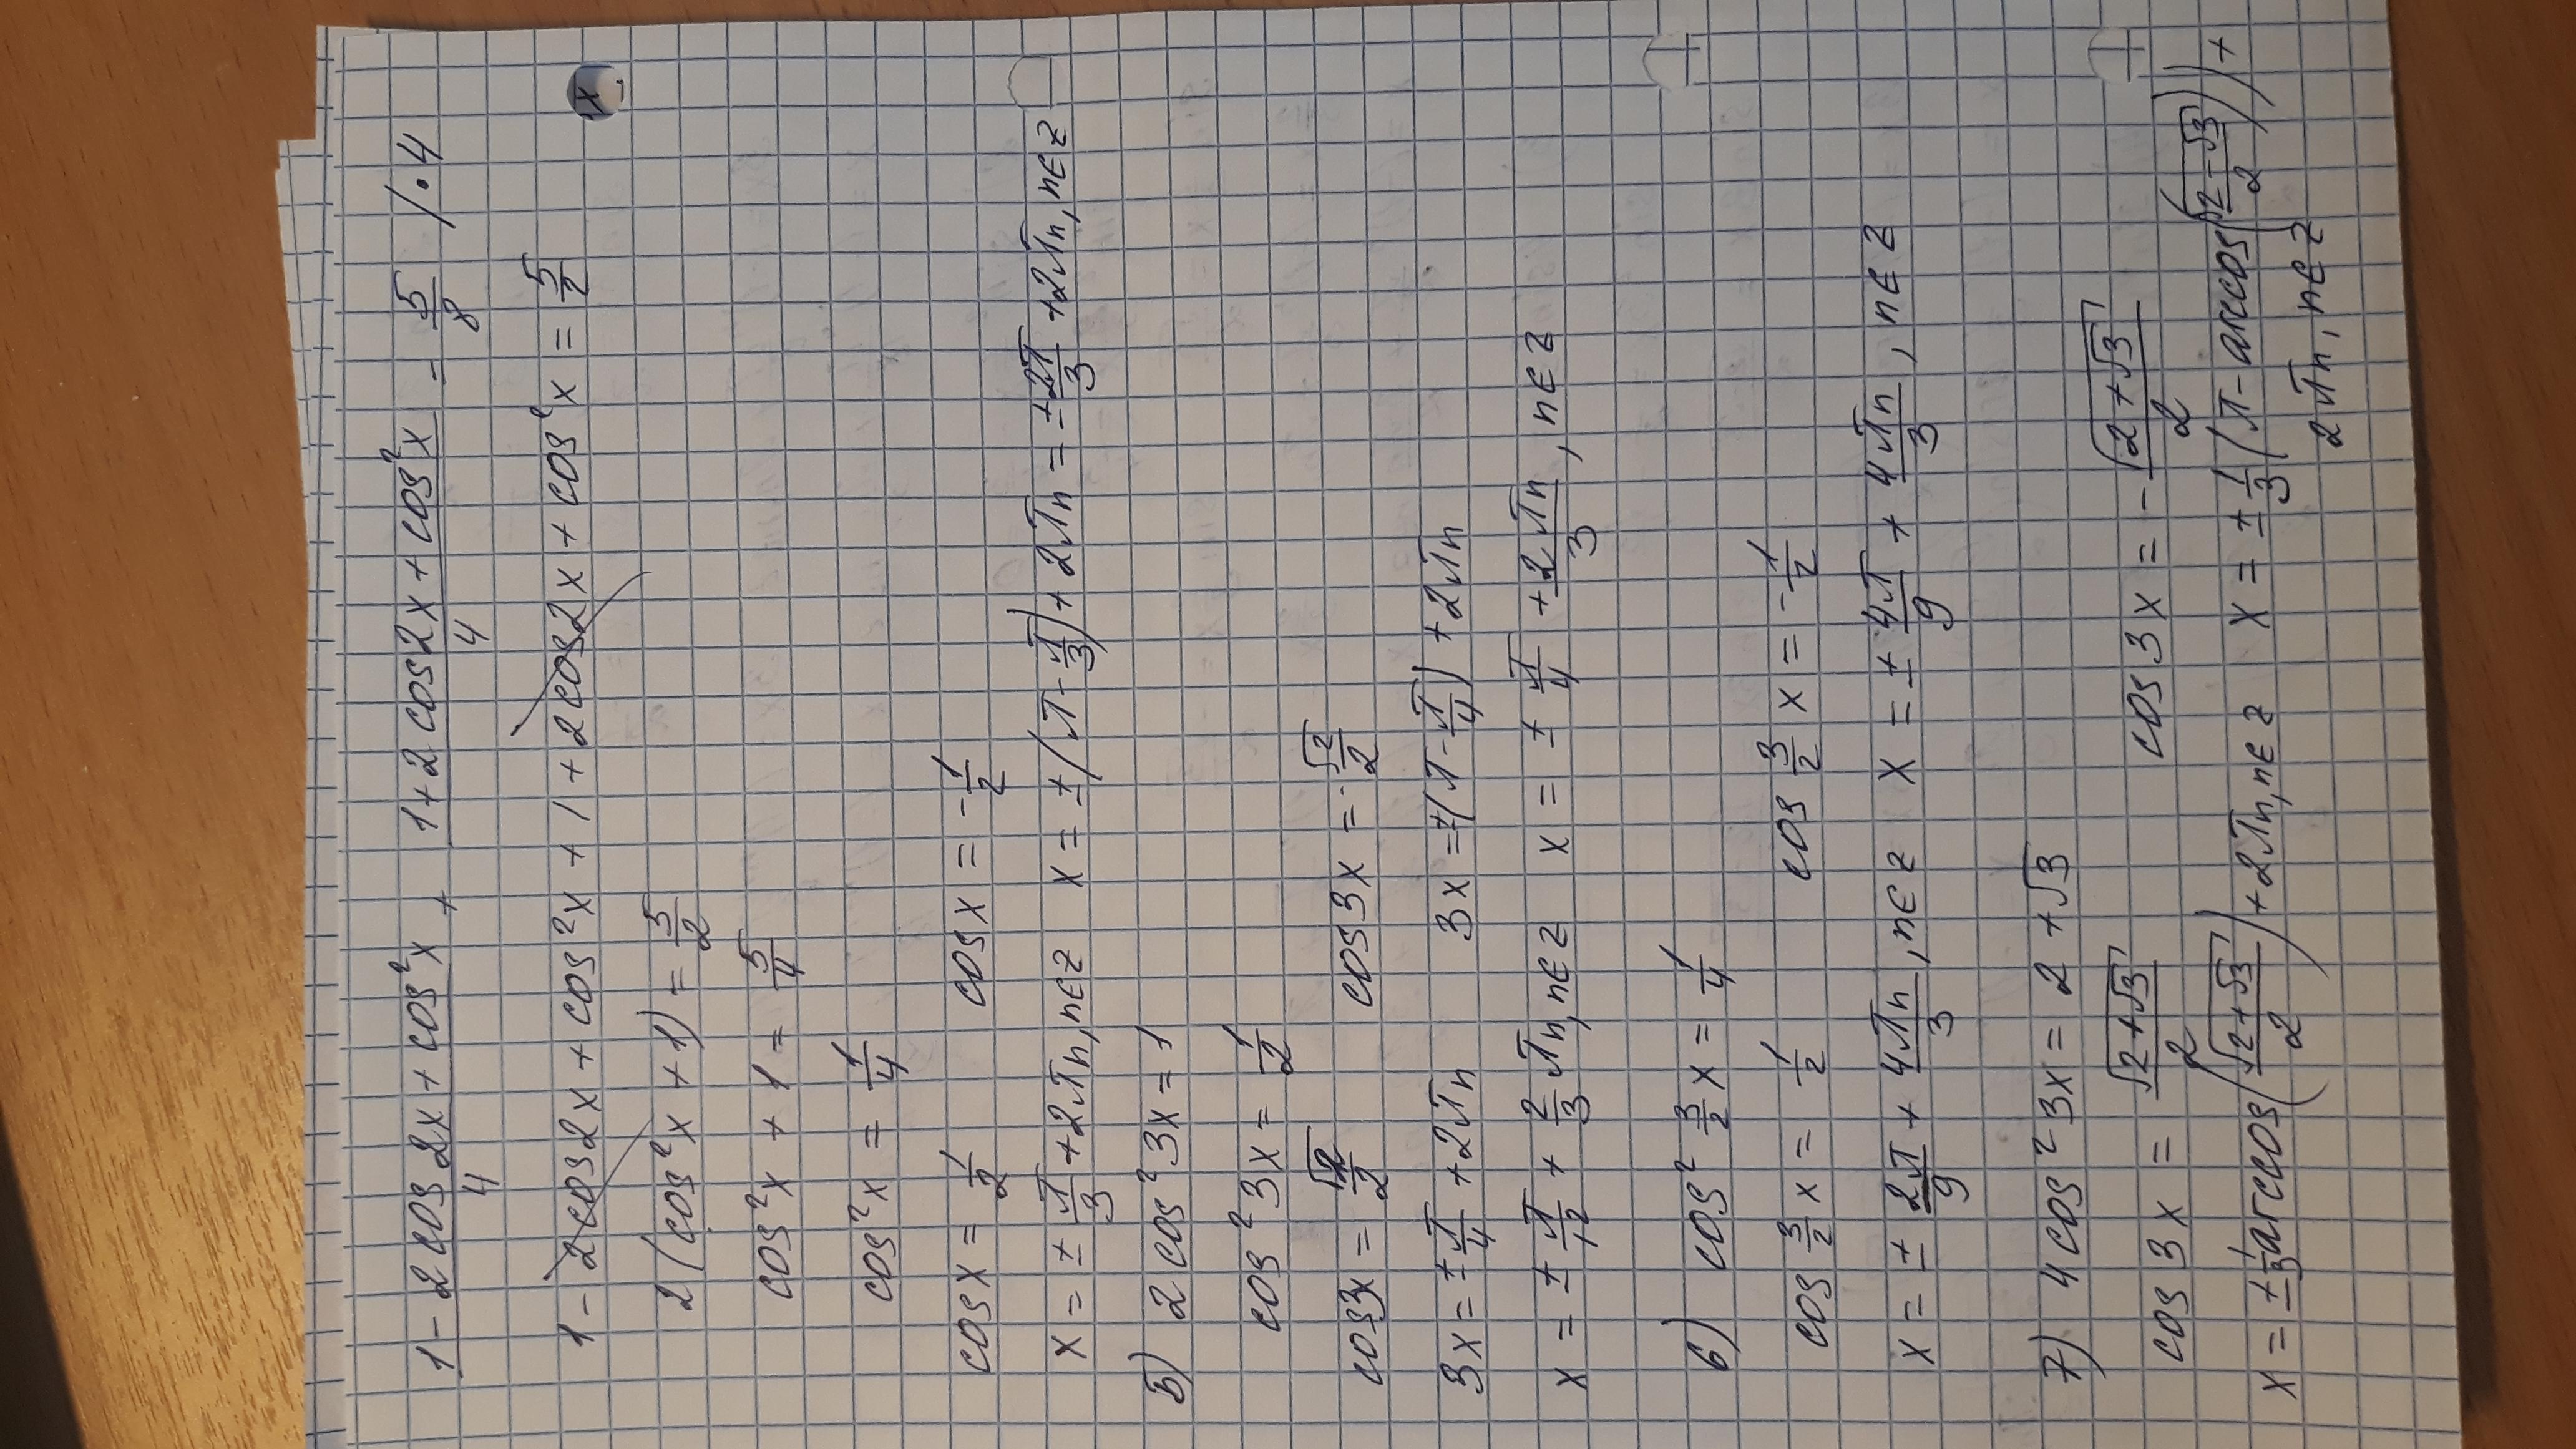 (1 - 2cos2x + cos²x)/4 + (1 + 2cos2x + cos²x)/4 = 5/8 /·4
1 - 2cos2x + cos²x + 1 + 2cos2x + cos²x = 5/2
2(cos²x + 1) = 5/2
cos²x + 1 = 5/4
cos²x = 1/4
cosx = 1/2 cosx = -1/2
x = ± π/3 + 2πn, n∈z x = ±(π - π/3) + 2πn = ± 2π/3 + 2πn, n∈z
5) 2cos²3x = 1
cos²3x = 1/2
cos3x = √2/2 cos3x = -√2/2
3x = ± π/4 + 2πn 3x = ±(π - π/4) + 2πn
x = ± π/12 + 2/3 πn, n∈z x = ± π/4 + 2πn/3, n∈z
6) cos² 3/2 x = 1/4
cos 3/2 x = 1/2 cos 3/2 x = -1/2
x = ± 2π/9 + 4πn/3, n∈z x = ± 4π/9 + 4πn/3, n∈z
7) 4cos²3x = 2 + √3
cos3x = √(2+√3)/2 cos3x = -√(2+√3)/2
x = ± 1/3 arccos(√(2+√3)/2) + 2πn, n∈z x = ± 1/3 (π - arccos(√(2-√3)/2)) +
2πn, n∈z